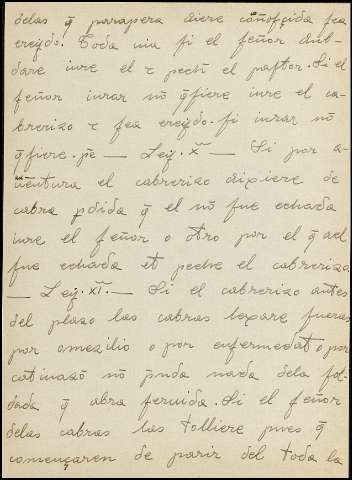 delas q̄ parapera diere coñosçida sea
creydo. Toda uia si el señor dub-
dare iure el τ peche el pastor. Si el
señor iurar nō q̄siere iure el ca-
brerizo τ sea creydo. si iurar nō
q̄siere. pē — Ley. x.ª — Si por a-
uentura el cabrerizo dixiere de
cabra pdida q̄ el nō fue echada
iure el señor o otro por el q̄ acl
fue echada et peche el cabrerizo
— Ley. xi.ª — Si el cabrerizo antes
del plazo las cabras lexare fueras
por omezilio o por enfermedat o por
catinazō nō pnda nada dela sol-
dada q̄ abra seruida. Si el señor
delas cabras las tolliere pues q̄
començaren de parir del toda la